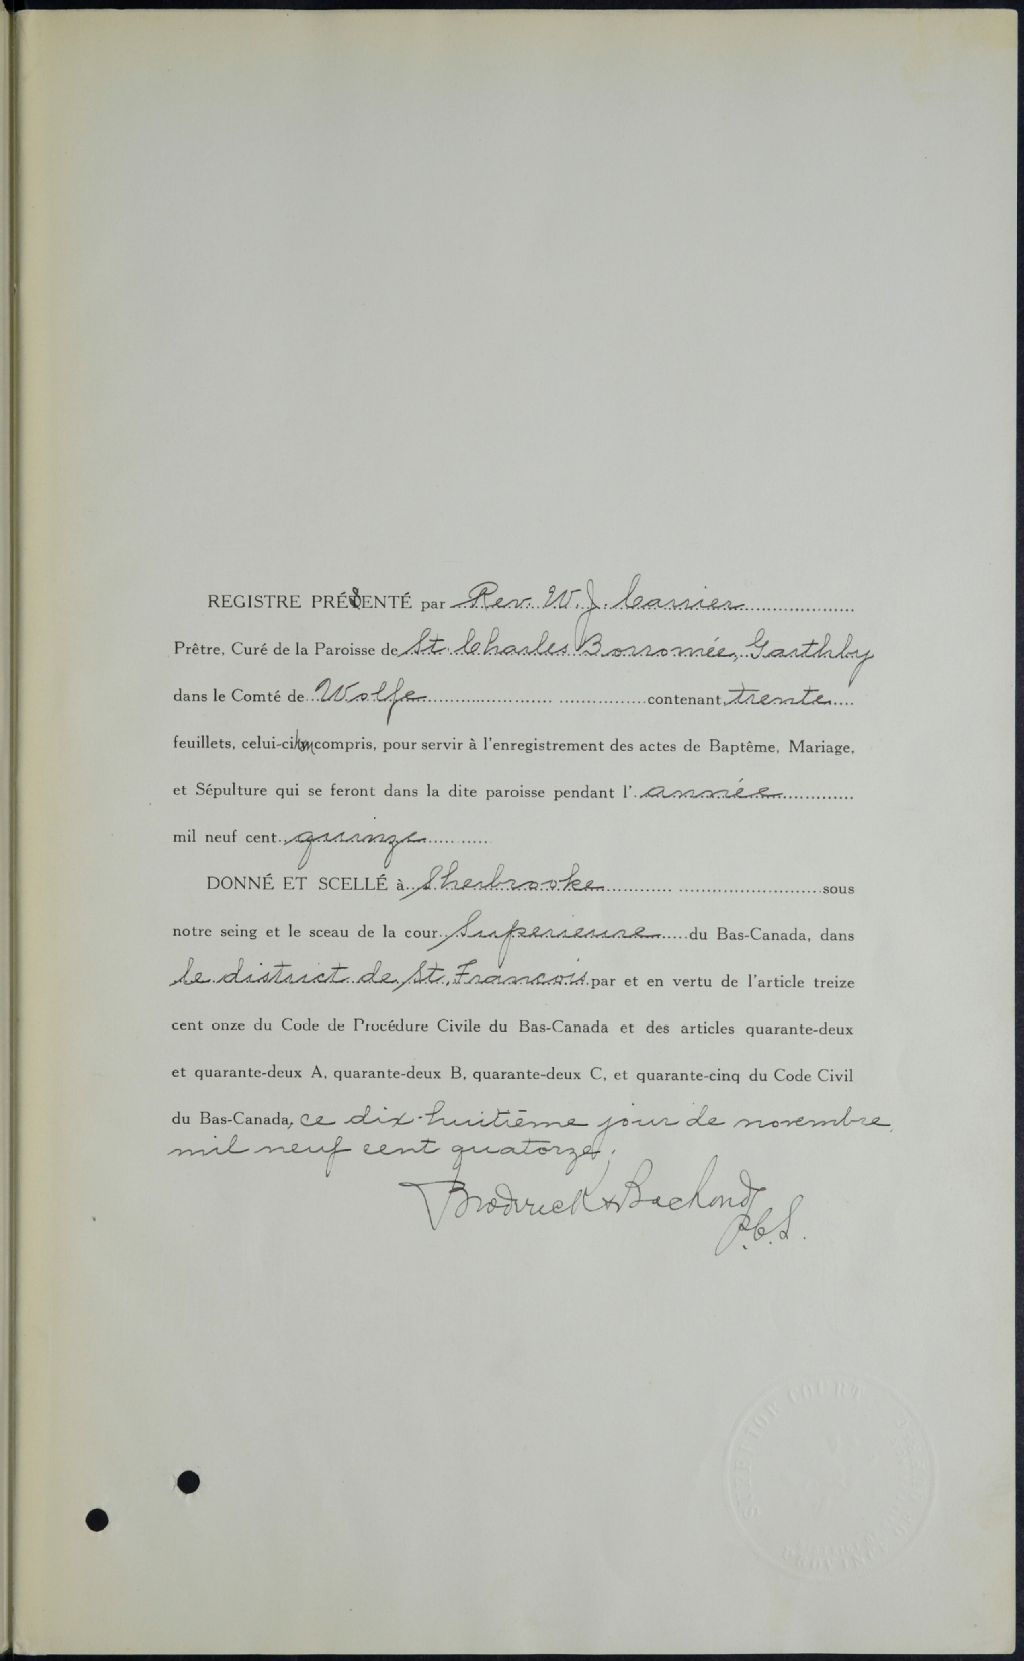 REGISTRE PRÉSENTÉ par Rev. W. J. Carrier
Prêtre, Curé de la Paroisse de St. Charles Borromée, Garthby
dans le Comté de Wolfe contenant trente
feuillets, celui-ci compris, pour servir à l'enregistrement des actes de Baptême, Mariage,
et Sépulture qui se feront dans la dite paroisse pendant l'année
mil neuf cent quinze
DONNÉ ET SCELLÉ à Sherbrooke sous
notre seing et le sceau de la cour Superieure du Bas-Canada, dans
le district de St. Francois par et en vertu de l'article treize
cent onze du Code de Procédure Civile du Bas-Canada et des articles quarante-deux
et quarante-deux A, quarante-deux B, quarante-deux C, et quarante-cinq du Code Civil
du Bas-Canada, ce dix-huitième jour de novembre
mil neuf cent quatorze.
Broderick & Bachand
P.C.S.
SUPERIOR COURT
PROVINCE OF